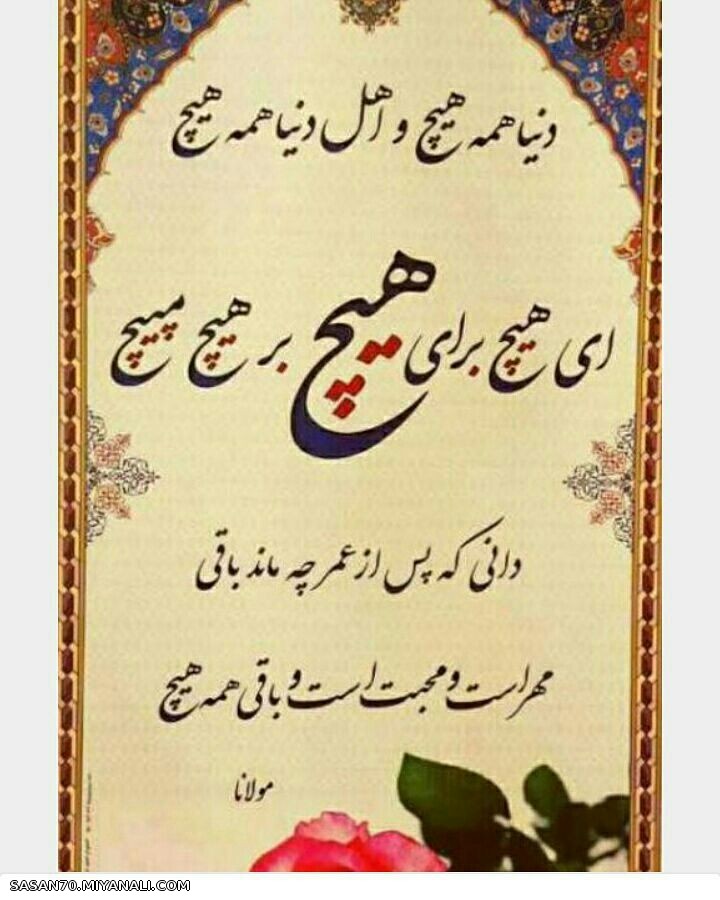 دنیا همه هیچ و اهل دنیا همه هیچ
ای هیچ برای هیچ بر هیچ مپیچ
دانی که پس از عمر چه ماند باقی
مهر است و محبت است و باقی همه هیچ
مولانا
SASAN70.MIYANALI.COM